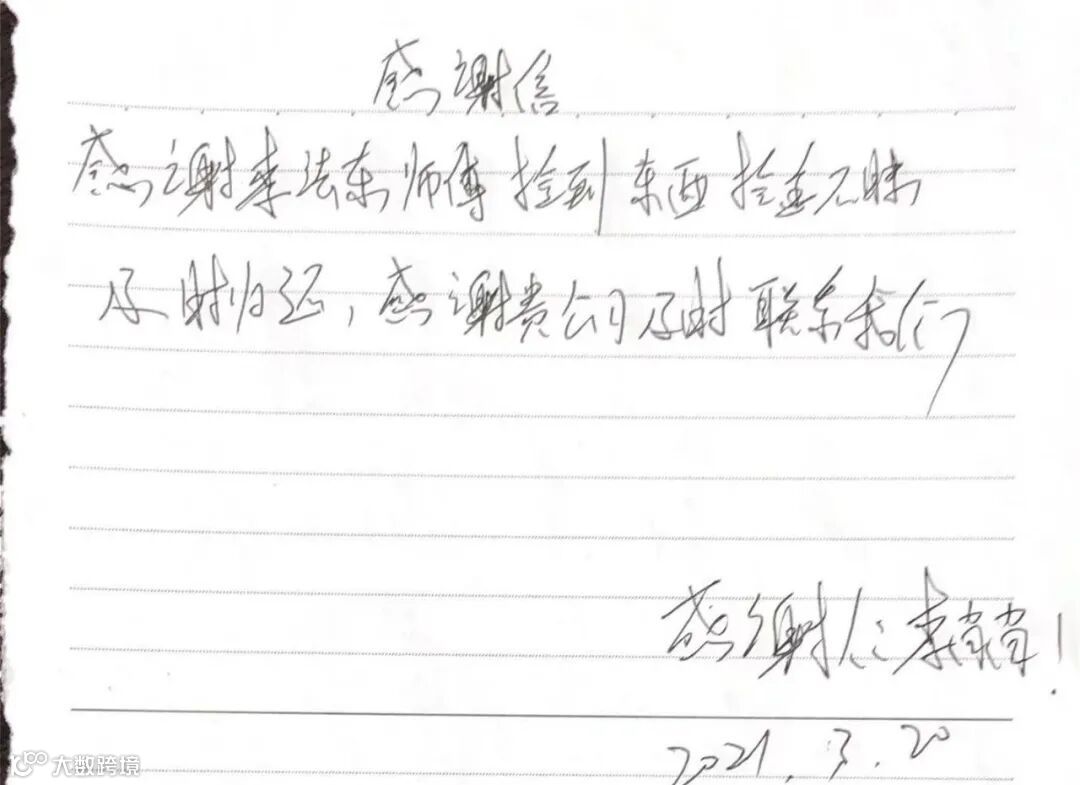 感谢信
感谢李法东师傅捡到东西拾金不昧
及时归还,感谢贵公司及时联系我们
感谢人:李肖肖!
2021.3.20
大数跨境